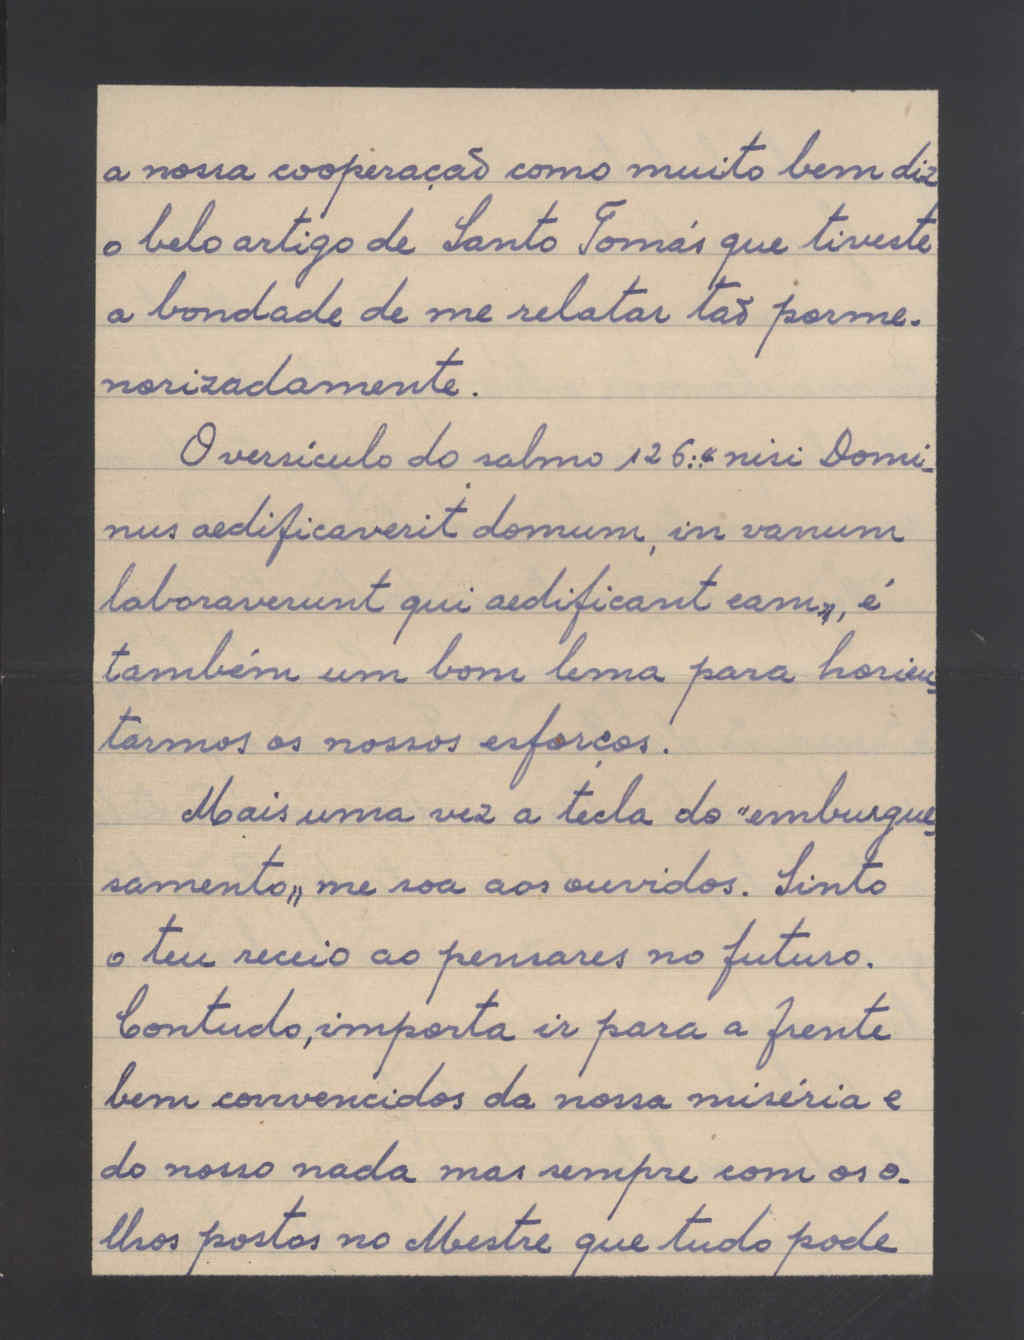 a nossa cooperação como muito bem diz
o belo artigo de Santo Tomás que tiveste
a bondade de me relatar tão porme-
norizadamente.
O versículo do salmo 126: "nisi Domi-
nus aedificaverit domum, in vanum
laboraverunt qui aedificant eam", é
também um bom lema para horien-
tarmos os nossos esforços.
Mais uma vez a tecla do "emburgue-
samento" me soa aos ouvidos. Sinto
o teu receio ao pensares no futuro.
Contudo, importa ir para a frente
bem convencidos da nossa miséria e
do nosso nada mas sempre com os o-
lhos postos no Mestre que tudo pode